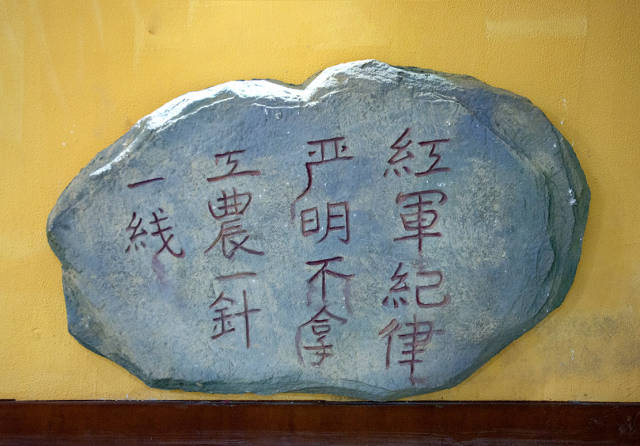 紅軍紀律
严明不拿
工農一針
一綫